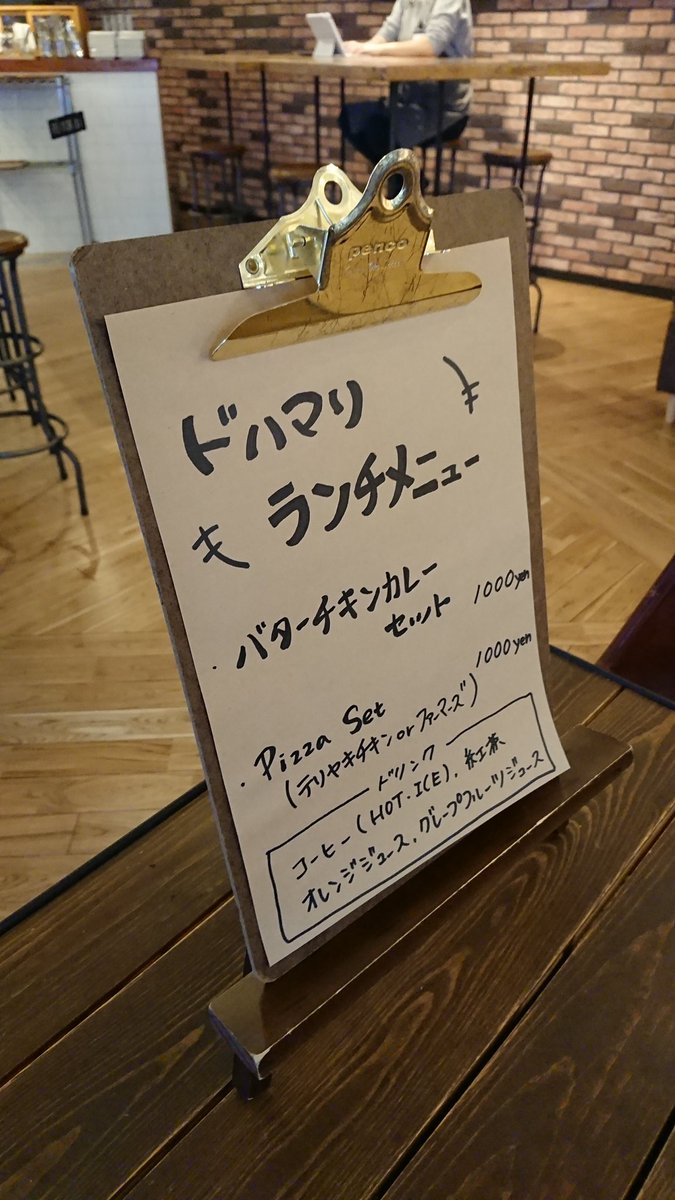 penco
ドハマり
ランチメニュー
・バターチキンカレー
セット 1000yen
・Pizza Set 1000yen
(テリヤキチキン or ファーマーズ)
ドリンク
コーヒー(HOT・ICE)、紅茶
オレンジジュース、グレープフルーツジュース